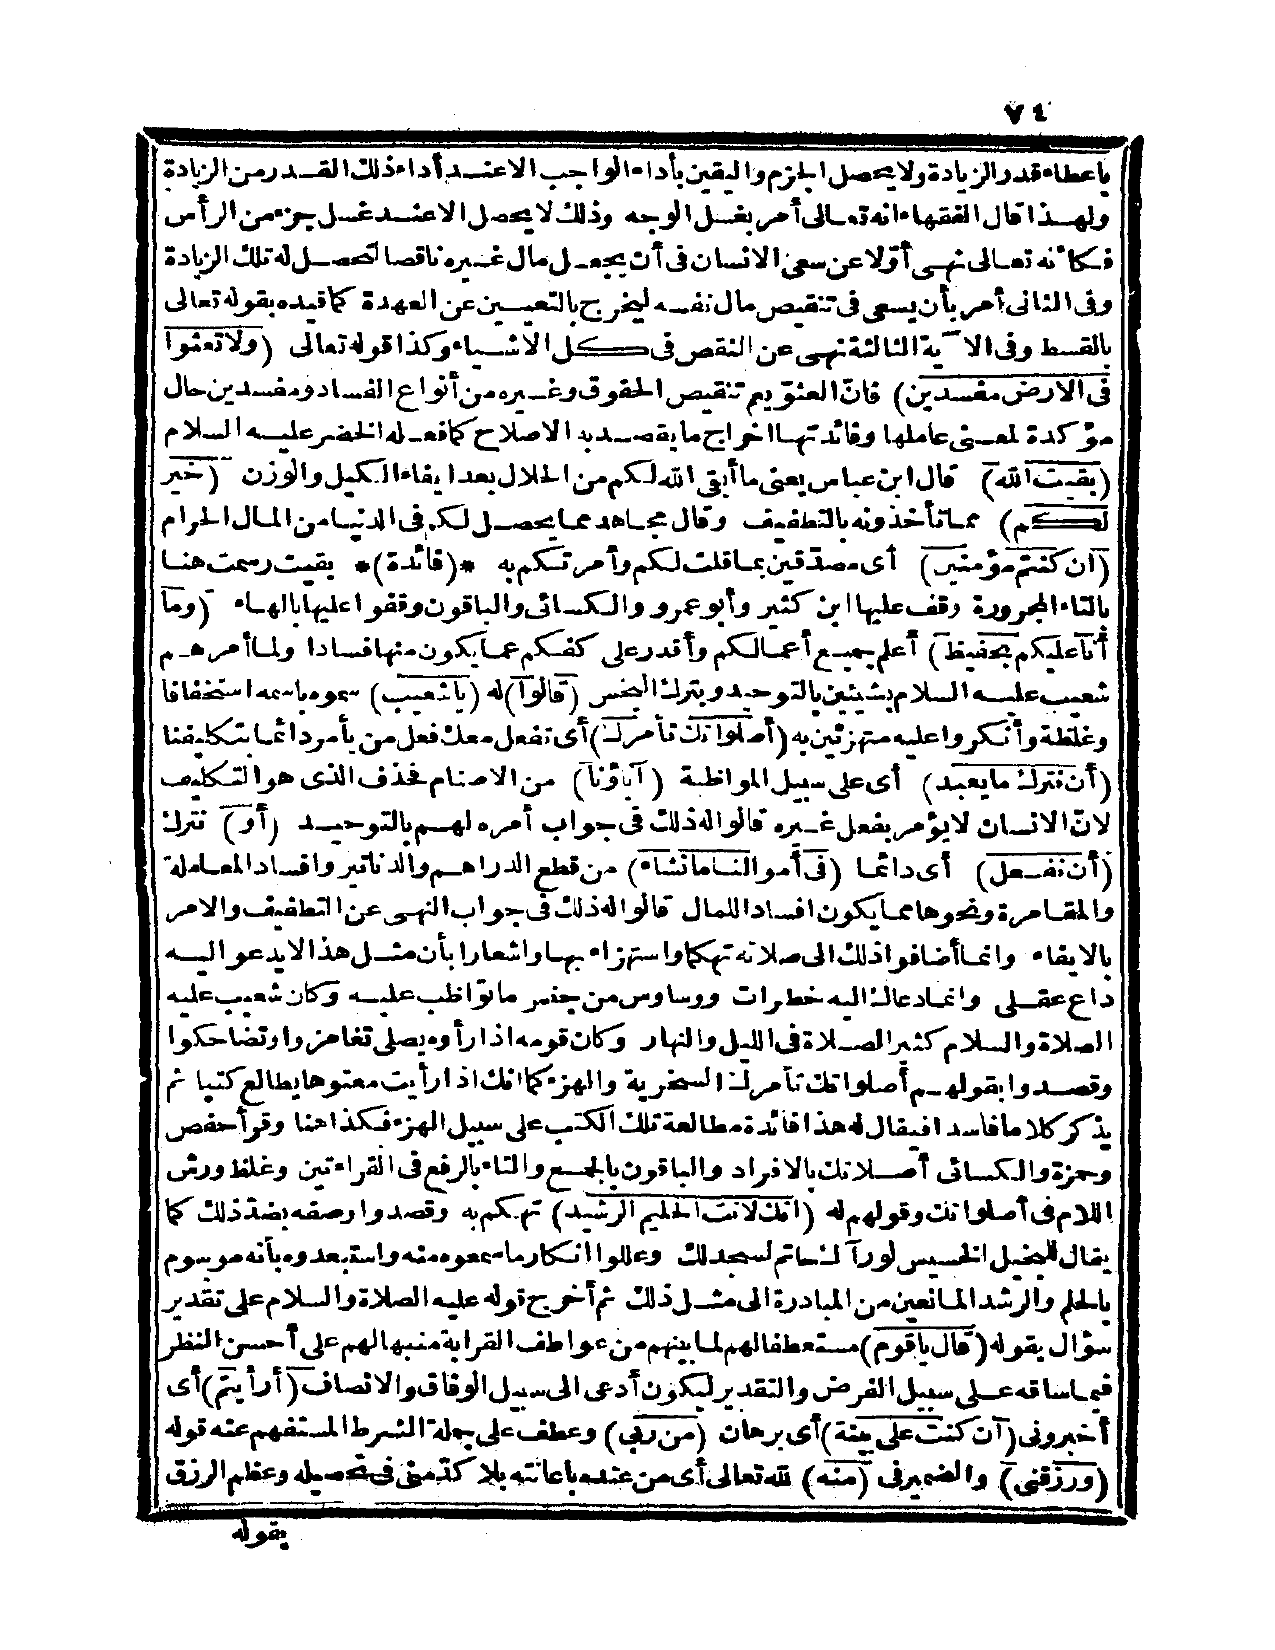 ٧٤
باعطاء قدر الزيادة ولا يحصل الجزم واليقين بأداء الواجب الا عند أداء ذلك القدر من الزيادة
ولهذا قال الفقهاء انه تعالى أمر بغسل الوجه وذلك لا يحصل الا عند غسل جزء من الرأس
فكأنه تعالى نهى أوّلا عن سعى الانسان فى أن يجعل مال غيره ناقصا لتحصل له تلك الزيادة
وفى الثانى أمر بأن يسعى فى تنقيص مال نفسه ليخرج بالتعيين عن العهدة كما قيده بقوله تعالى
بالقسط وفى الآية الثالثة نهى عن النقص فى كل الاشياء وكذا قوله تعالى (ولا تعثوا
فى الارض مفسدين) فانّ العثوّ يم تنقيص الحقوق وغيره من أنواع الفساد ومفسدين حال
مؤكدة لمعنى عاملها وفائدتها اخراج ما يقصد به الاصلاح كما فعله الخضر عليه السلام
(بقيت الله) قال ابن عباس يعنى ما أبقى الله لكم من الحلال بعد ايفاء الكيل والوزن (خير
لكم) مما تأخذونه بالتطفيف وقال مجاهد مما يحصل لكم فى الدنيا من المال الحرام
(ان كنتم مؤمنين) أى مصدقين بما قلت لكم وأمرتكم به *(فائدة)* بقيت رسمت هنا
بالتاء المجرورة وقف عليها ابن كثير وأبو عمرو والكسائى والباقون وقفوا عليها بالهاء (وما
أنا عليكم بحفيظ) أعلم جميع أعمالكم وأقدر على كفكم عما يكون منها فسادا ولما أمرهم
شعيب عليه السلام بشيئين بالتوحيد وبترك البخس (قالوا) له (يا شعيب) سموه باسمه استخفافا
وغلظة وأنكروا عليه متهزئين به (أصلواتك تأمرك) أى تفعل معك فعل من يأمر دائما بتكليفنا
(أن نترك ما يعبد) أى على سبيل المواظبة (آباؤنا) من الاصنام فحذف الذى هو التكليف
لانّ الانسان لا يؤمر بفعل غيره قالوا له ذلك فى جواب أمره لهم بالتوحيد (أو) نترك
(أن نفعل) أى دائما (فى أموالنا ما نشاء) من قطع الدراهم والدنانير وافساد المعاملة
والمقامرة ونحوها مما يكون افسادا للمال قالوا له ذلك فى جواب النهى عن التطفيف والامر
بالايفاء وانما أضافوا ذلك الى صلاته تهكما واستهزاء بها واشعارا بأن مثل هذا لا يدعو اليه
داع عقلى وانما دعاك اليه خطرات ووساوس من جنس ما تواظب عليه وكان شعيب عليه
الصلاة والسلام كثير الصلاة فى الليل والنهار وكان قومه اذا رأوه يصلى تغامزوا وتضاحكوا
وقصدوا بقولهم أصلواتك تأمرك السخرية والهزء كما انك اذا رأيت معتوها يطالع كتبا ثم
يذكر كلاما فاسدا فيقال له هذا فائدة مطالعة تلك الكتب على سبيل الهزء فكذا هنا وقرأ حفص
وحمزة والكسائى أصلاتك بالافراد والباقون بالجمع والتاء بالرفع فى القراءتين وغلظ ورش
اللام فى أصلواتك وقولهم له (انك لانت الحليم الرشيد) تهكم به وقصدوا وصفه بضدّ ذلك كما
يقال للبخيل الخسيس لو رآك حاتم لسجد لك وعللوا انكار ما سمعوه منه واستبعدوه بأنه موسوم
بالحلم والرشد المانعين من المبادرة الى مثل ذلك ثم أخرج قوله عليه الصلاة والسلام على تقدير
سؤال بقوله (قال يا قوم) مستعطفا لهم لما بينهم من عواطف القرابة منبها لهم على أحسن النظر
فيما ساقه على سبيل الفرض والتقدير ليكون أدعى الى سبيل الوفاق والانصاف (أرأيتم) أى
أخبرونى (ان كنت على بينة) أى برهان (من ربى) وعطف على جملة الشرط المستفهم عنه قوله
(ورزقنى) والضمير فى (منه) لله تعالى أى من عنده باعانته بلا كدّ منى فى تحصيله وعظم الرزق
بقوله